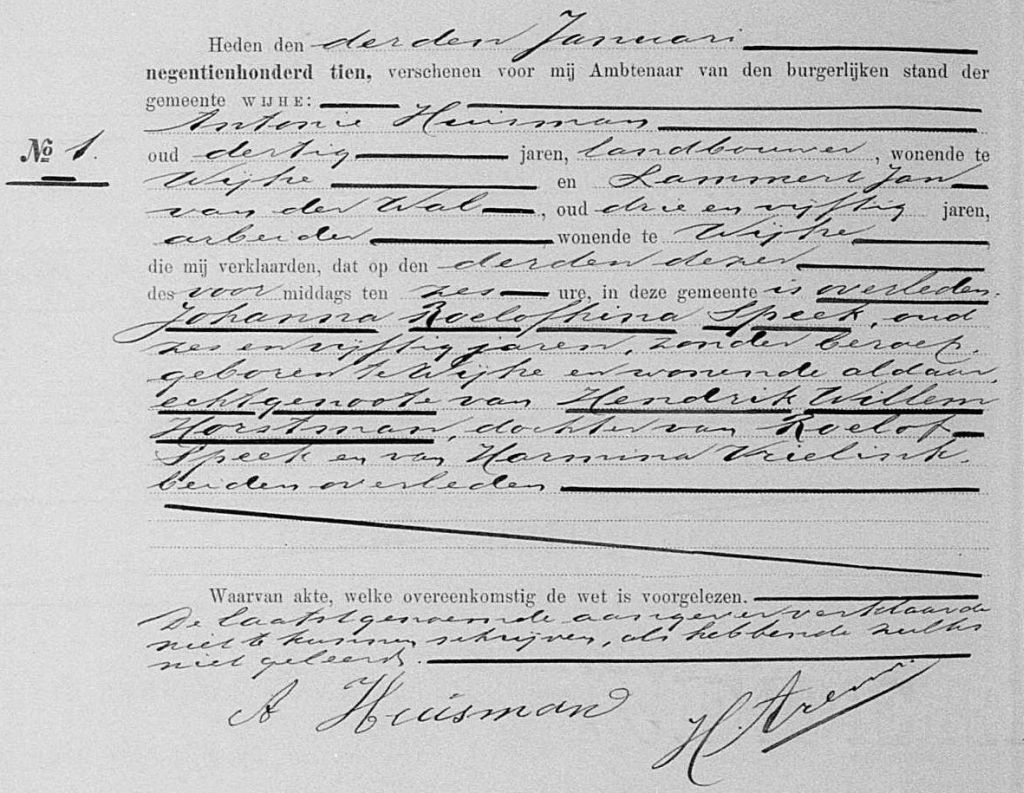 Heden den derden Januari
negentienhonderd tien, verschenen voor mij Ambtenaar van den burgerlijken stand der
gemeente WIJHE:
Antonie Huisman
No 1.
oud dertig jaren, landbouwer, wonende te
Wijhe en Lammert Jan
van der Wal, oud drie en vijftig jaren,
arbeider wonende te Wijhe
die mij verklaarden, dat op den derden dezer
des voor middags ten zes ure, in deze gemeente is overleden:
Johanna Roelofhina Speek, oud
zes en vijftig jaren, zonder beroep,
geboren te Wijhe en wonende aldaar,
echtgenoote van Hendrik Willem
Horstman, dochter van Roelof
Speek en van Harmina Vrielink,
beiden overleden
Waarvan akte, welke overeenkomstig de wet is voorgelezen.
De laatstgenoemde aangever verklaarde
niet te kunnen schrijven, als hebbende zulks
niet geleerd.
A Huisman
H.